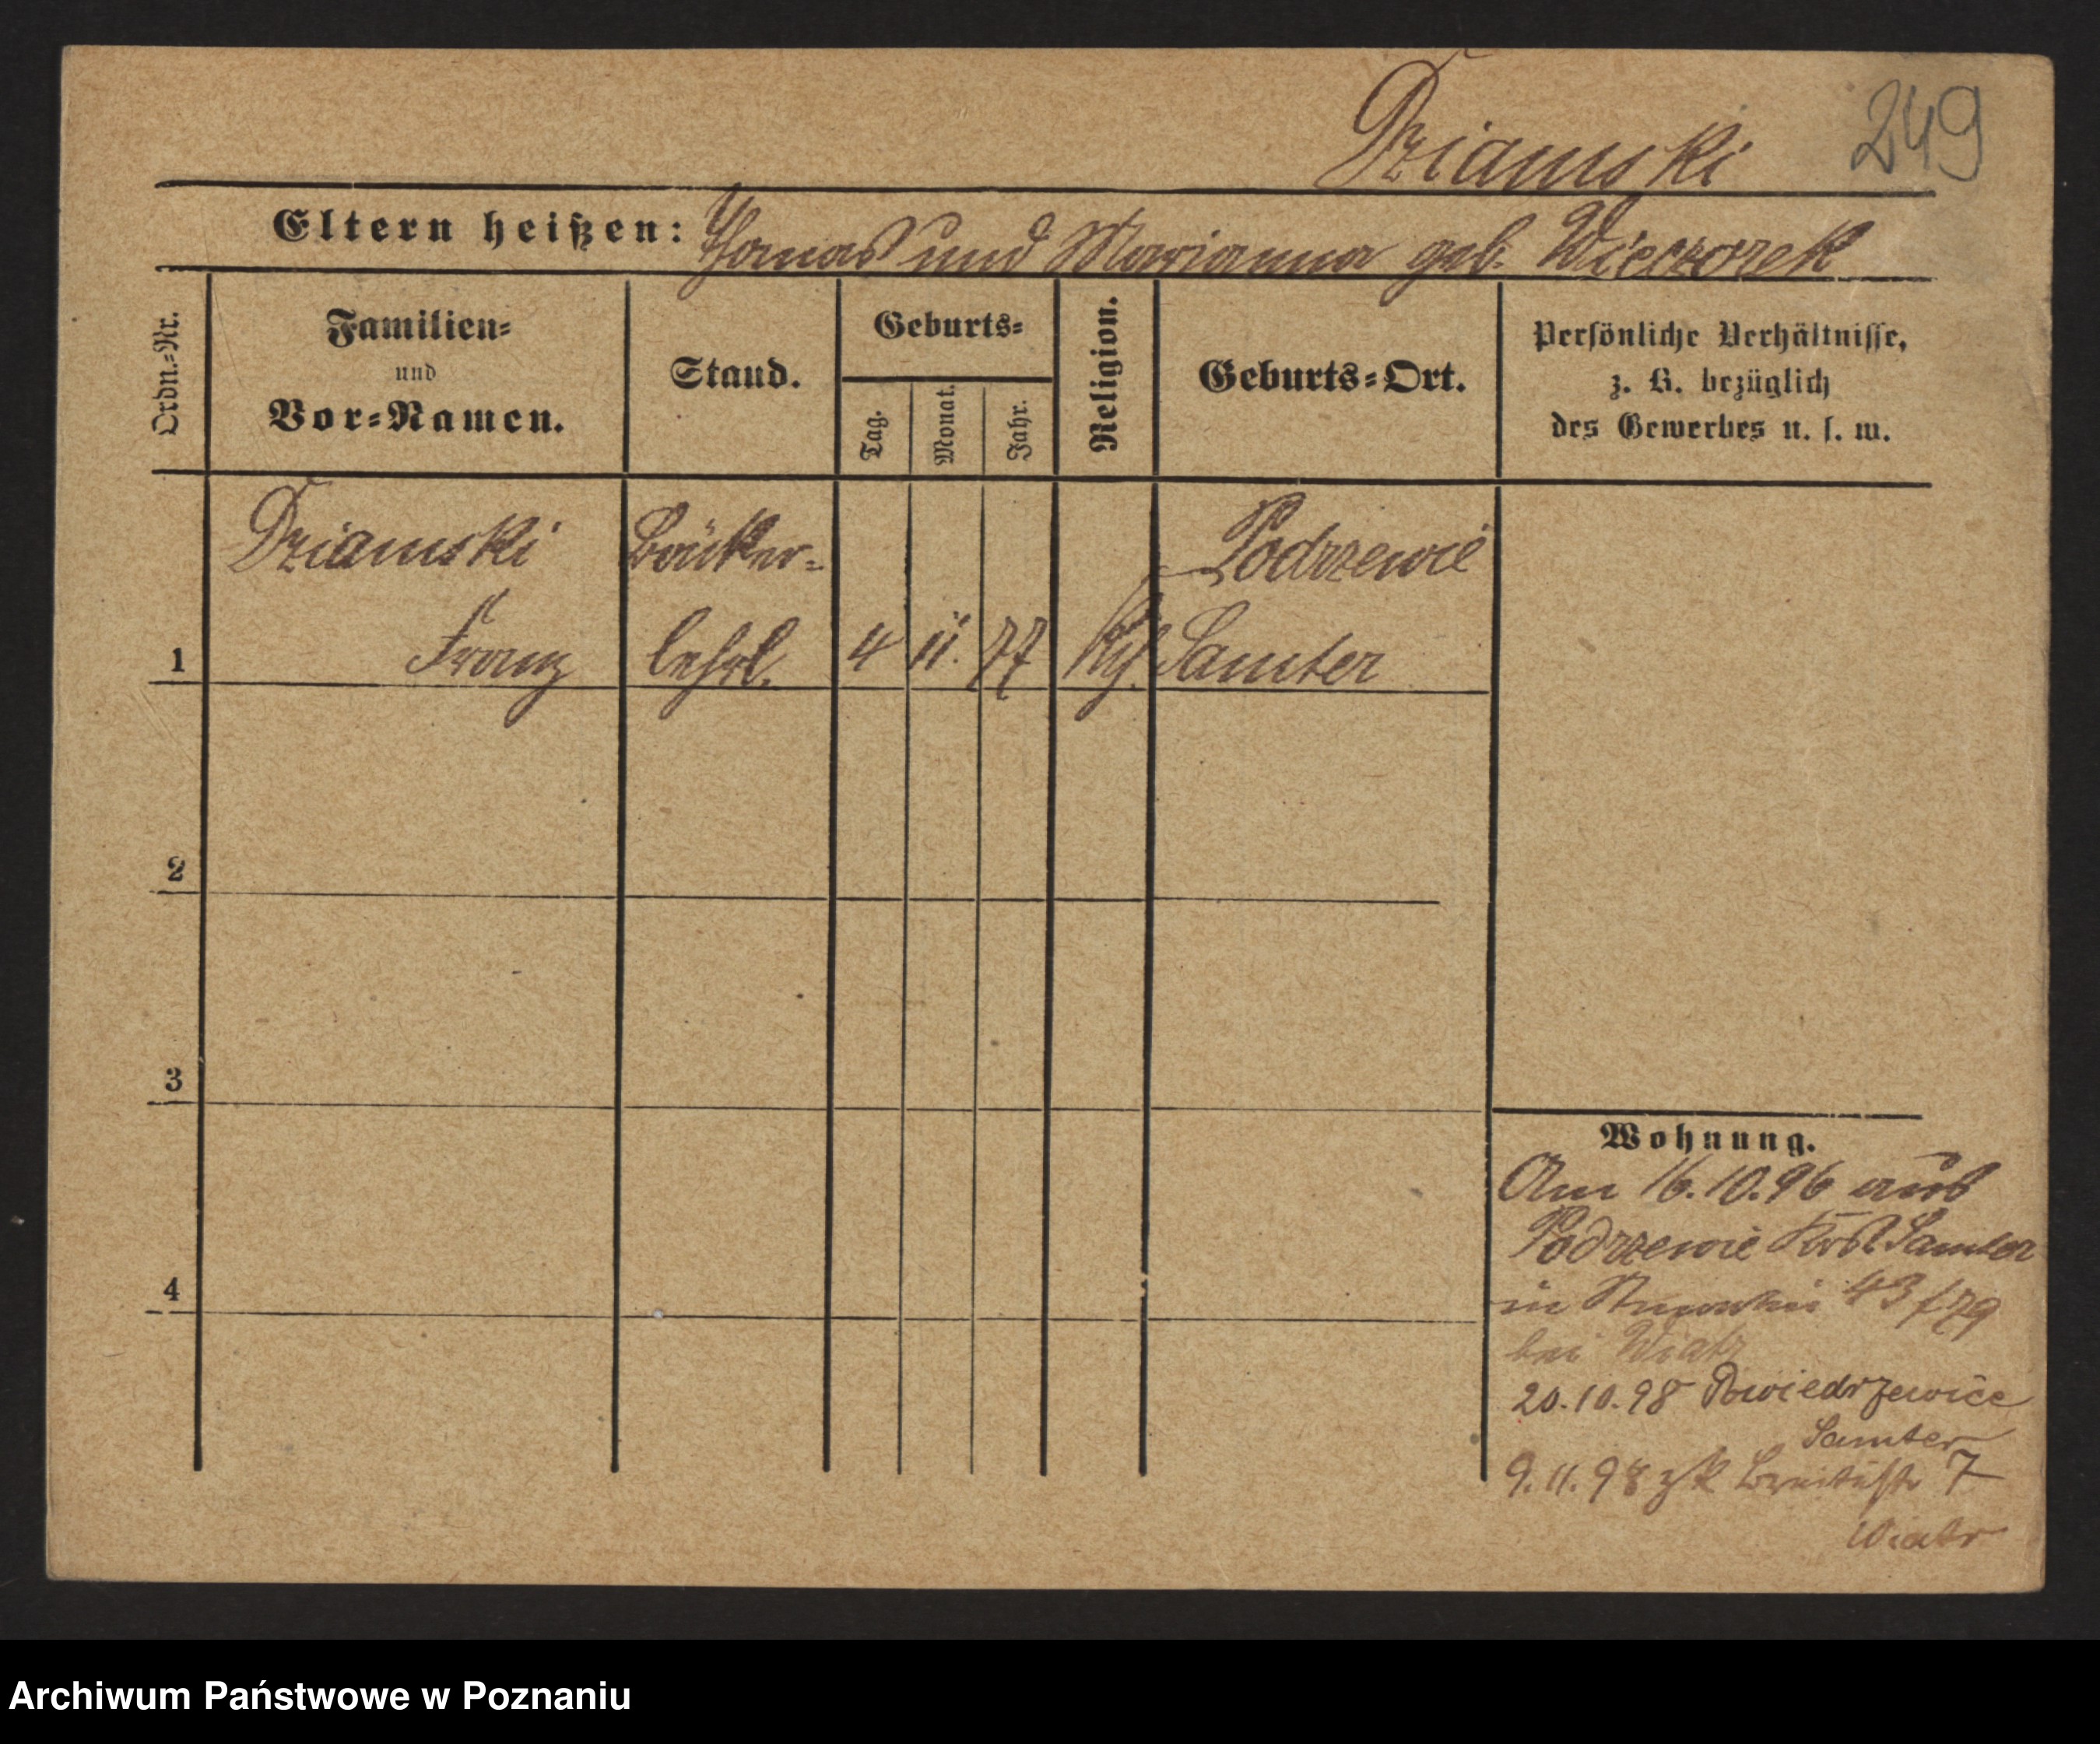 Dziamski
249
Eltern heißen: Thomas und Marianna geb. Wieczorek
Ordn.-Nr.
Familien-
und
Vor-Namen.
Stand.
Geburts-
Tag.
Monat.
Jahr.
Religion.
Geburts-Ort.
Persönliche Verhältnisse,
z. B. bezüglich
des Gewerbes u. s. w.
Dziamski
Franz
4 11. 77
Podrzewie
Samter
1
2
3
4
Wohnung.
Am 16.10.96 aus
Podrzewie Krs Samter
in 43
bei Wiatr
20.10.98
Samter
9.11.98 zk Breitestr 7
Wiatr
Archiwum Państwowe w Poznaniu